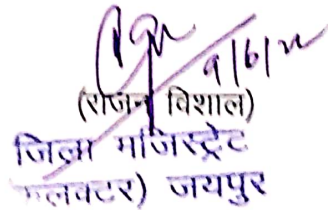 9/6/22
(राजन विशाल)
जिला मजिस्ट्रेट
कलक्टर) जयपुर